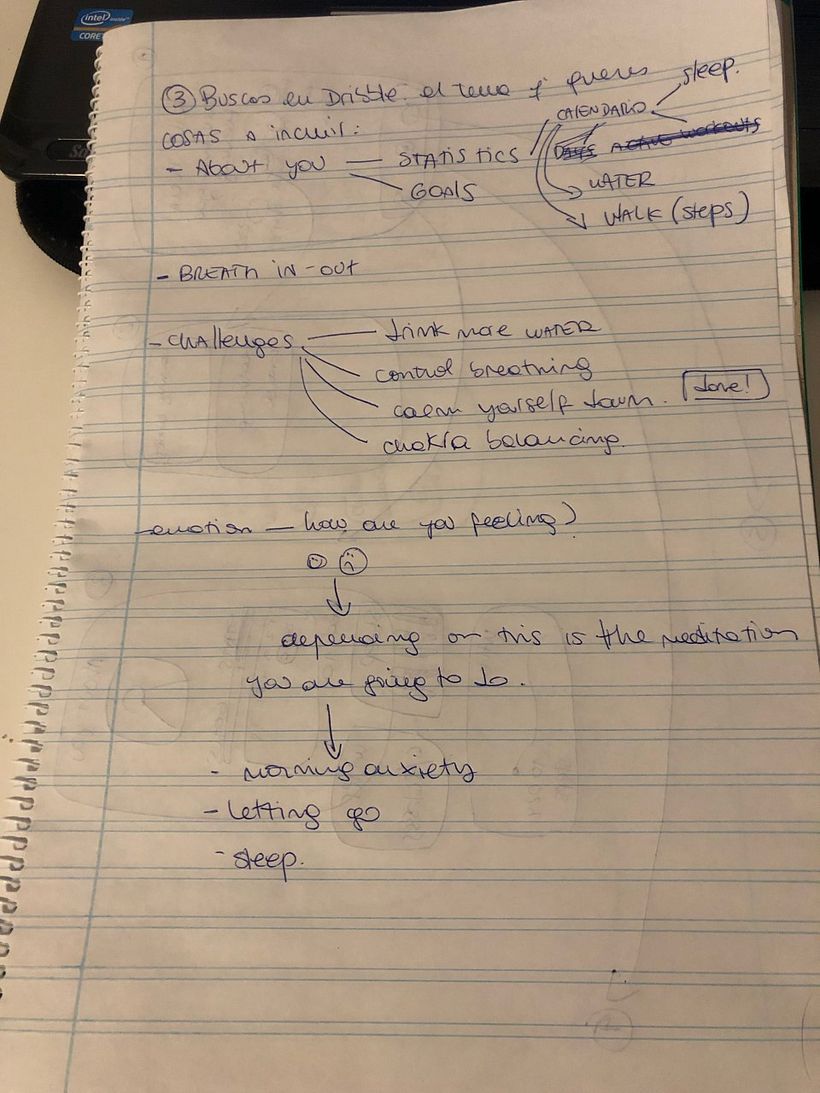 intel inside
CORE
③ Buscas en Dribble: el tema q' queres
COSAS A incluir:
- About you — STATISTICS
GOALS
CALENDARIO
sleep.
DAYS ACTIVE WORKOUTS
WATER
WALK (steps)
- BREATH IN-OUT
- CHAllenges — drink more WATER
control breathing
calm yourself down. done!
chakra balancing.
- emotion — how are you feeling?
depending on this is the meditation
you are going to do.
- morning anxiety
- letting go
- sleep.